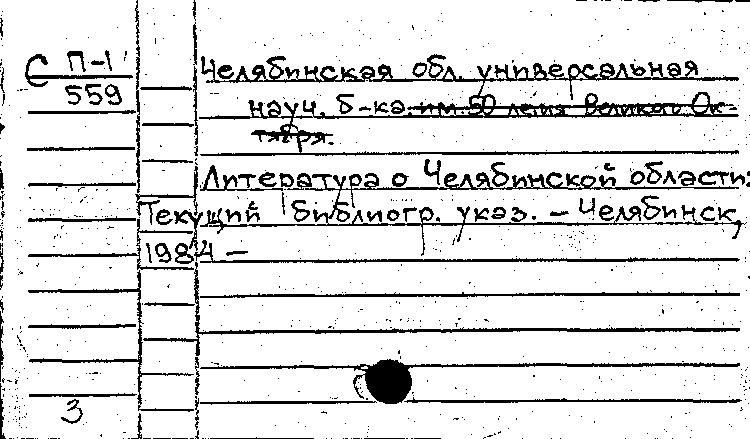 С П-1
559
Челябинская обл. универсальная
науч. б-ка. им. 50 летия Великого Ок-
тября.
Литература о Челябинской области:
Текущий библиогр. указ. – Челябинск,
1984 –
3